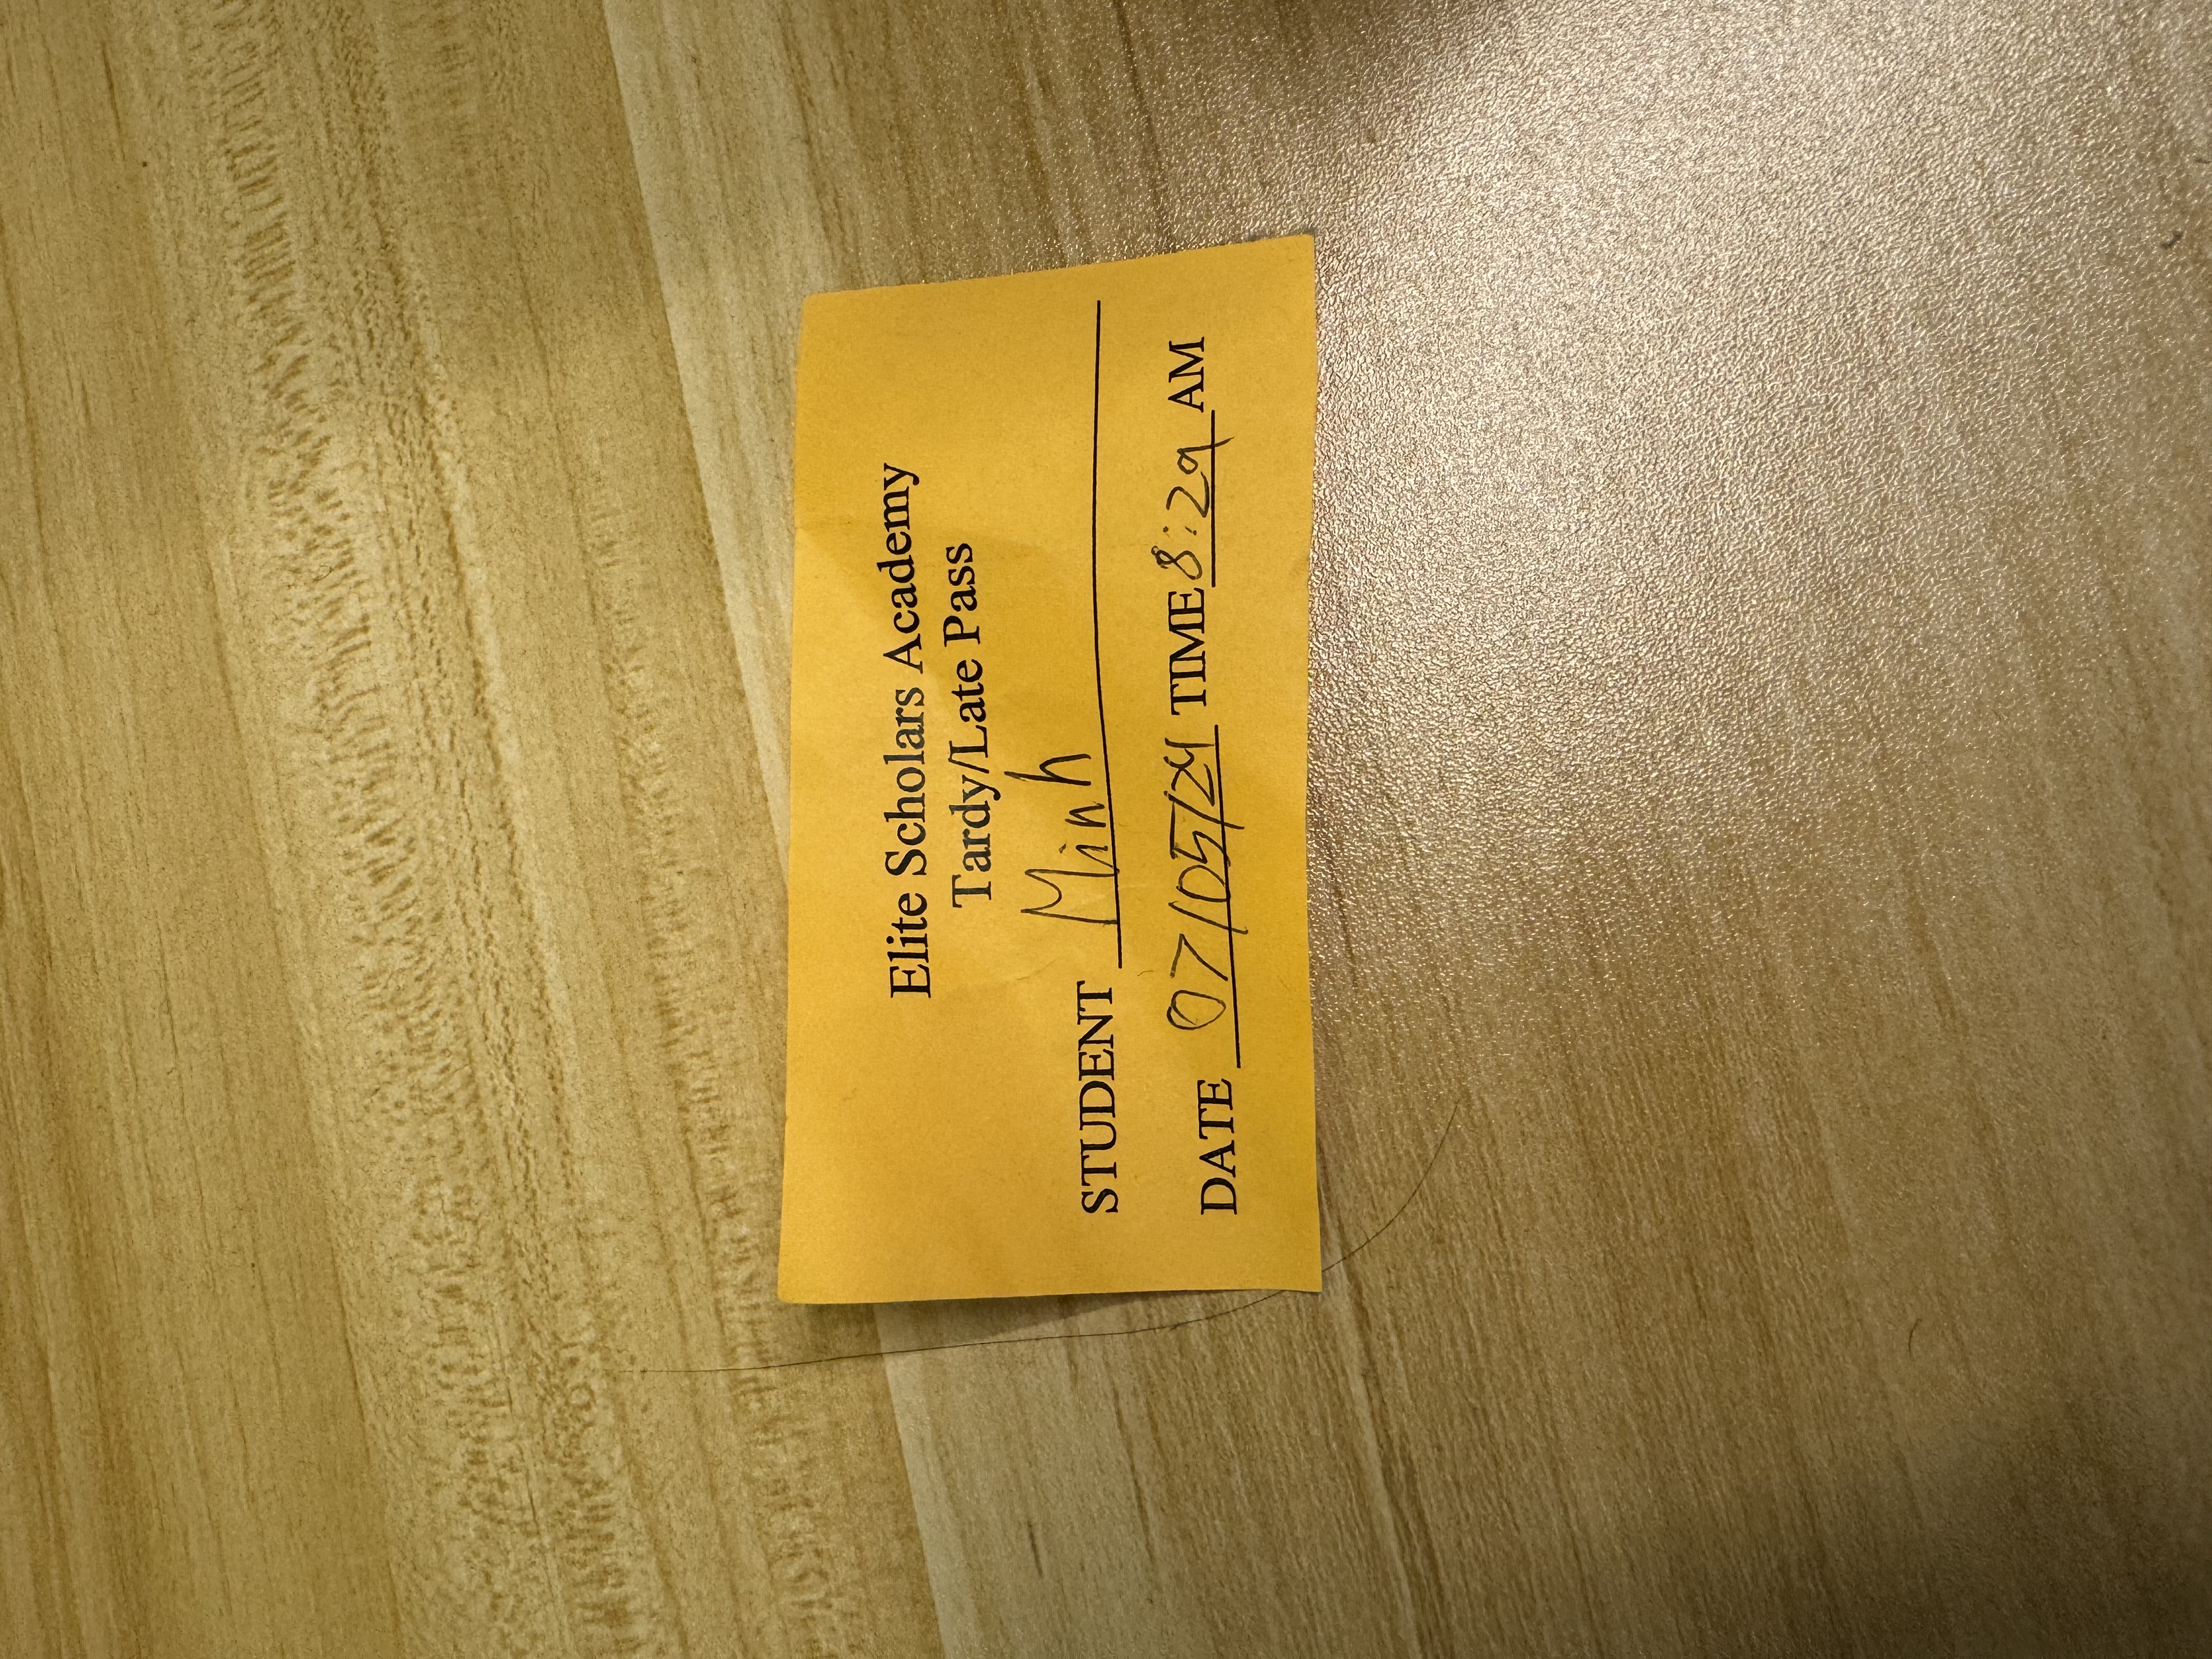 Elite Scholars Academy
Tardy/Late Pass
STUDENT Minh
DATE 07/05/24 TIME 8:29 AM